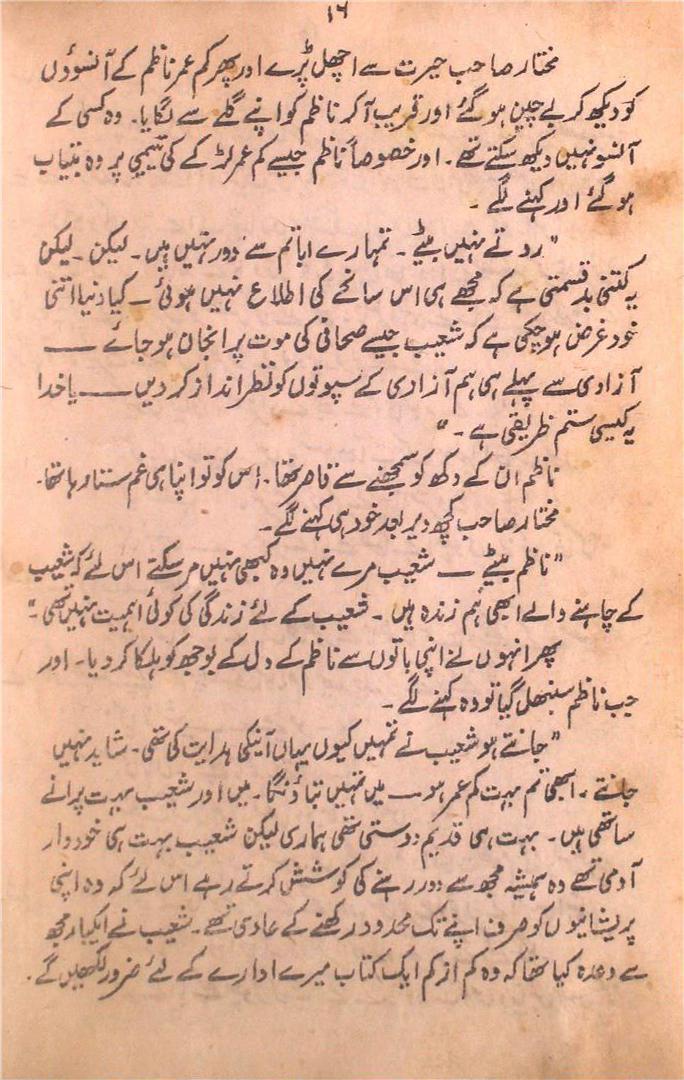 ۱۶
مختار صاحب حیرت سے اچھل پڑے اور پھر کم عمر ناظم کے آنسوؤں
کو دیکھ کر بے چین ہو گئے اور قریب آ کر ناظم کو اپنے گلے سے لگایا۔ وہ کسی کے
آنسو نہیں دیکھ سکتے تھے۔ اور خصوصاً ناظم جیسے کم عمر لڑکے کی یتیمی پر وہ بیتاب
ہو گئے اور کہنے لگے۔
”روتے نہیں بیٹے۔ تمہارے ابا تم سے دور نہیں ہیں۔ لیکن۔ لیکن
یہ کتنی بدقسمتی ہے کہ مجھے ہی اس سانحے کی اطلاع نہیں ہوئی۔ کیا دنیا اتنی
خود غرض ہو چکی ہے کہ شعیب جیسے صحافی کی موت پر انجان ہو جائے ——
آزادی سے پہلے ہی ہم آزادی کے سپوتوں کو نظر انداز کر دیں —— یا خدا
یہ کیسی ستم ظریفی ہے۔“
ناظم ان کے دکھ کو سمجھنے سے قاصر تھا۔ اس کو تو اپنا ہی غم ستا رہا تھا۔
مختار صاحب کچھ دیر بعد خود ہی کہنے لگے۔
”ناظم بیٹے — شعیب مرے نہیں وہ کبھی نہیں مر سکتے اس لئے کہ شعیب
کے چاہنے والے ابھی ہم زندہ ہیں۔ شعیب کے لئے زندگی کی کوئی اہمیت نہیں تھی۔“
پھر انہوں نے اپنی باتوں سے ناظم کے دل کے بوجھ کو ہلکا کر دیا۔ اور
جب ناظم سنبھل گیا تو وہ کہنے لگے۔
”جانتے ہو شعیب نے تمہیں کیوں یہاں آنیکی ہدایت کی تھی۔ شاید نہیں
جانتے۔ ابھی تم بہت کم عمر ہو — میں نہیں بتاؤنگا۔ میں اور شعیب بہت پرانے
ساتھی ہیں۔ بہت ہی قدیم دوستی تھی ہماری لیکن شعیب بہت ہی خوددار
آدمی تھے وہ ہمیشہ مجھ سے دور رہنے کی کوشش کرتے رہے اس لئے کہ وہ اپنی
پریشانیوں کو صرف اپنے تک محدود رکھنے کے عادی تھے۔ شعیب نے ایکبار مجھ
سے وعدہ کیا تھا کہ وہ کم از کم ایک کتاب میرے ادارے کے لئے ضرور لکھیں گے۔